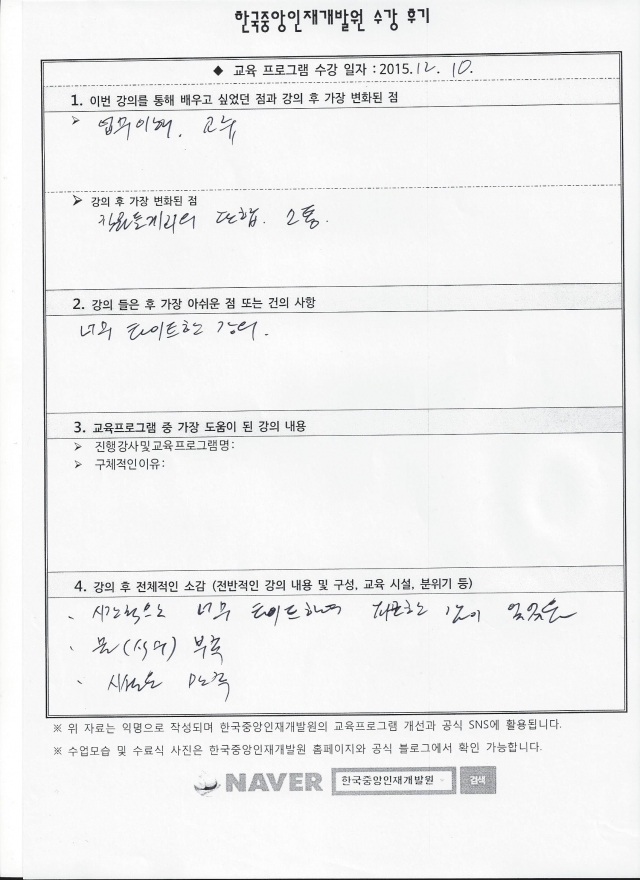 한국중앙인재개발원 수강 후기
◆ 교육 프로그램 수강 일자 : 2015. 12. 10.
1. 이번 강의를 통해 배우고 싶었던 점과 강의 후 가장 변화된 점
➢ 업무이해. 교육
➢ 강의 후 가장 변화된 점
직원들끼리의 단합. 소통.
2. 강의 들은 후 가장 아쉬운 점 또는 건의 사항
너무 타이트한 강의.
3. 교육프로그램 중 가장 도움이 된 강의 내용
➢ 진행강사및교육프로그램명:
➢ 구체적인이유:
4. 강의 후 전체적인 소감 (전반적인 강의 내용 및 구성, 교육 시설, 분위기 등)
. 시간적으로 너무 타이트하여 감이 있었음
. 물(식수) 부족
. 시설은 만족
※ 위 자료는 익명으로 작성되며 한국중앙인재개발원의 교육프로그램 개선과 공식 SNS에 활용됩니다.
※ 수업모습 및 수료식 사진은 한국중앙인재개발원 홈페이지와 공식 블로그에서 확인 가능합니다.
NAVER 한국중앙인재개발원 검색